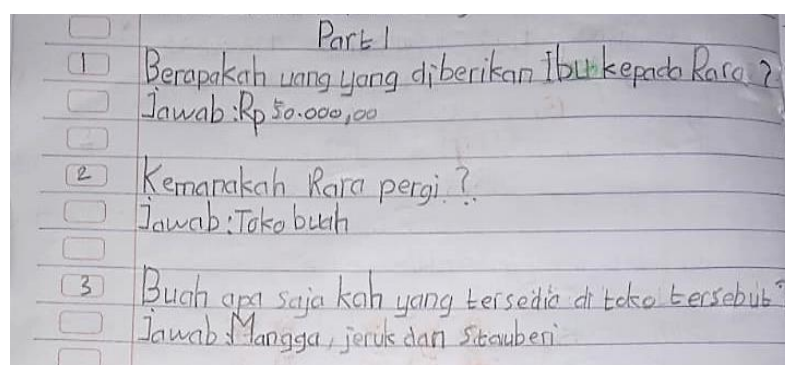 Part 1
1 Berapakah uang yang diberikan Ibu kepada Rara ?
Jawab : Rp 50.000,00
2 Kemanakah Rara pergi ?
Jawab : Toko buah
3 Buah apa saja kah yang tersedia di toko tersebut ?
Jawab : Mangga, jeruk dan Stouberi